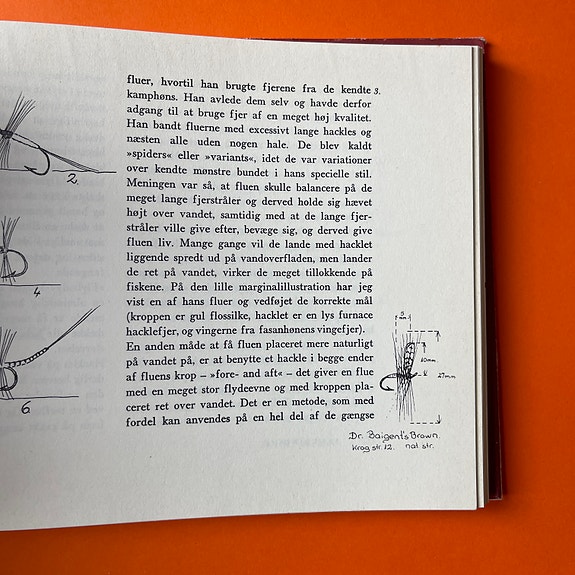 2.
4
6.
fluer, hvortil han brugte fjerene fra de kendte 3.
kamphøns. Han avlede dem selv og havde derfor
adgang til at bruge fjer af en meget høj kvalitet.
Han bandt fluerne med excessivt lange hackles og
næsten alle uden nogen hale. De blev kaldt
»spiders« eller »variants«, idet de var variationer
over kendte mønstre bundet i hans specielle stil.
Meningen var så, at fluen skulle balancere på de
meget lange fjerstråler og derved holde sig hævet
højt over vandet, samtidig med at de lange fjer-
stråler ville give efter, bevæge sig, og derved give
fluen liv. Mange gange vil de lande med hacklet
liggende spredt ud på vandoverfladen, men lander
de ret på vandet, virker de meget tillokkende på
fiskene. På den lille marginalillustration har jeg
vist en af hans fluer og vedføjet de korrekte mål
(kroppen er gul flossilke, hacklet er en lys furnace
hacklefjer, og vingerne fra fasanhønens vingefjer).
En anden måde at få fluen placeret mere naturligt
på vandet på, er at benytte et hackle i begge ender
af fluens krop – »fore- and aft« – det giver en flue
med en meget stor flydeevne og med kroppen pla-
ceret ret over vandet. Det er en metode, som med
fordel kan anvendes på en hel del af de gængse
mm.
10mm.
27mm
Dr. Baigent's Brown.
Krog str. 12. nat. str.